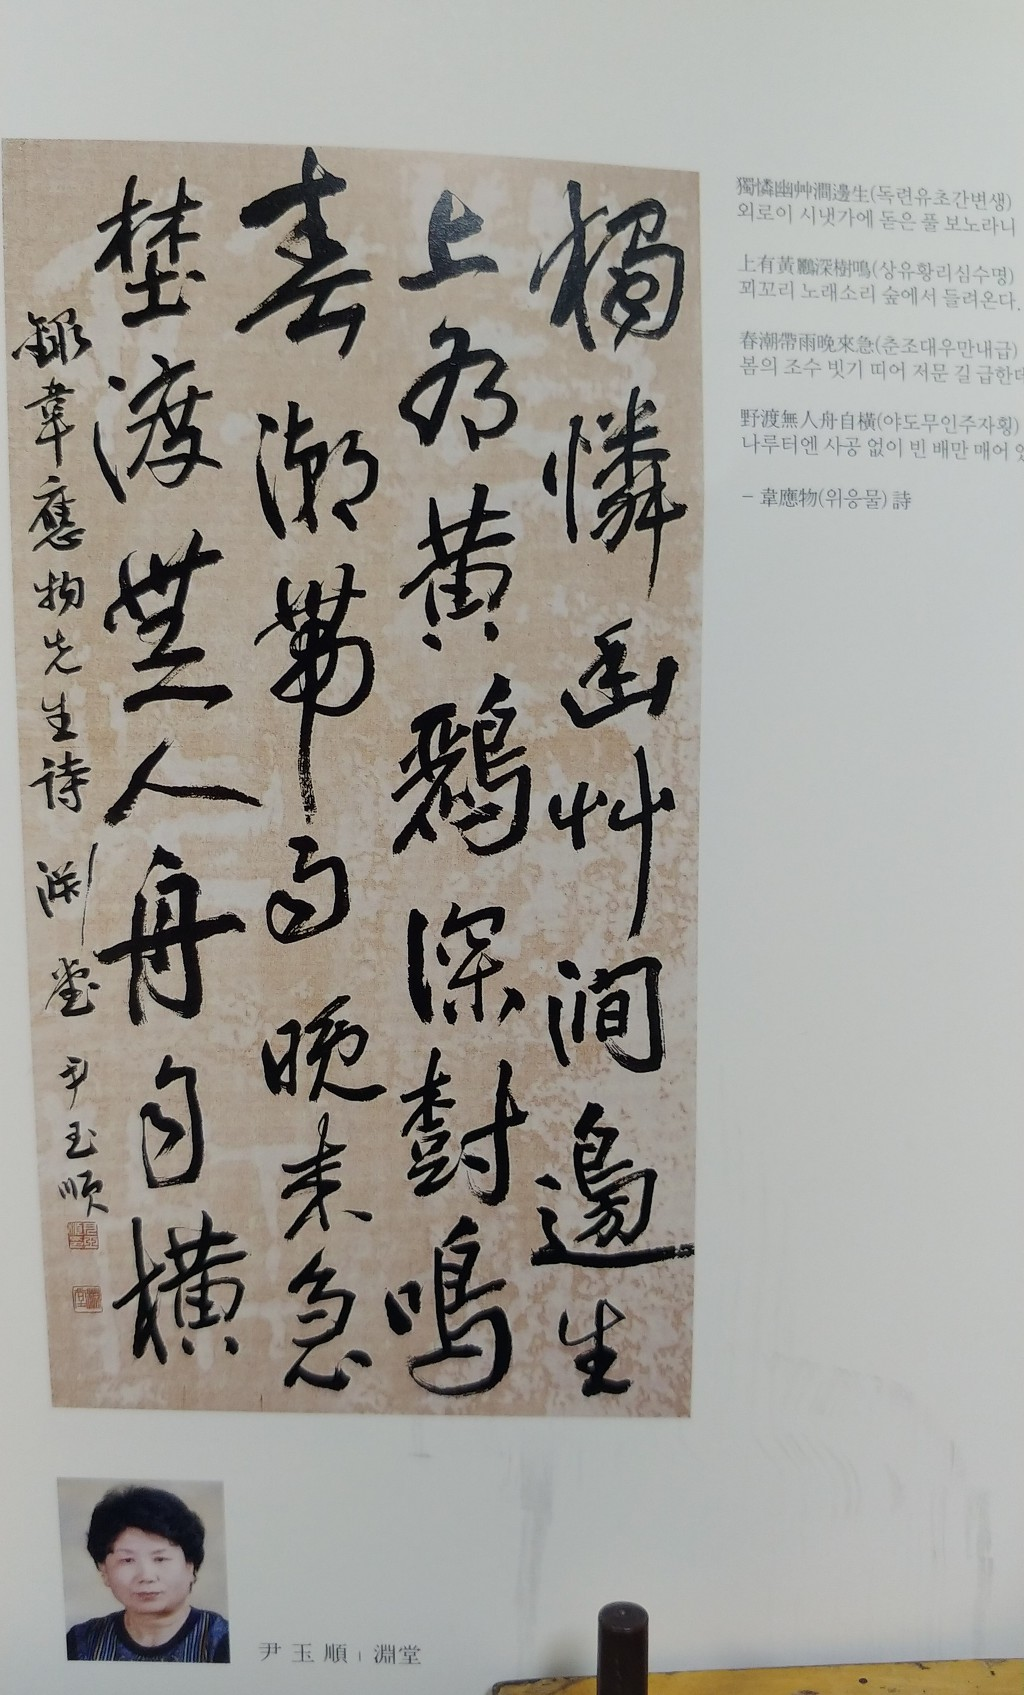 獨憐幽艸澗邊生
上有黃鸝深樹鳴
春潮帶雨晚來急
埜渡無人舟自橫
錄韋應物先生詩 淵堂 尹玉順
獨憐幽艸澗邊生(독련유초간변생)
외로이 시냇가에 돋은 풀 보노라니
上有黃鸝深樹鳴(상유황리심수명)
꾀꼬리 노래소리 숲에서 들려온다.
春潮帶雨晩來急(춘조대우만내급)
봄의 조수 빗기 띠어 저문 길 급한데
野渡無人舟自橫(야도무인주자횡)
나루터엔 사공 없이 빈 배만 매어
- 韋應物(위응물) 詩
尹玉順 | 淵堂